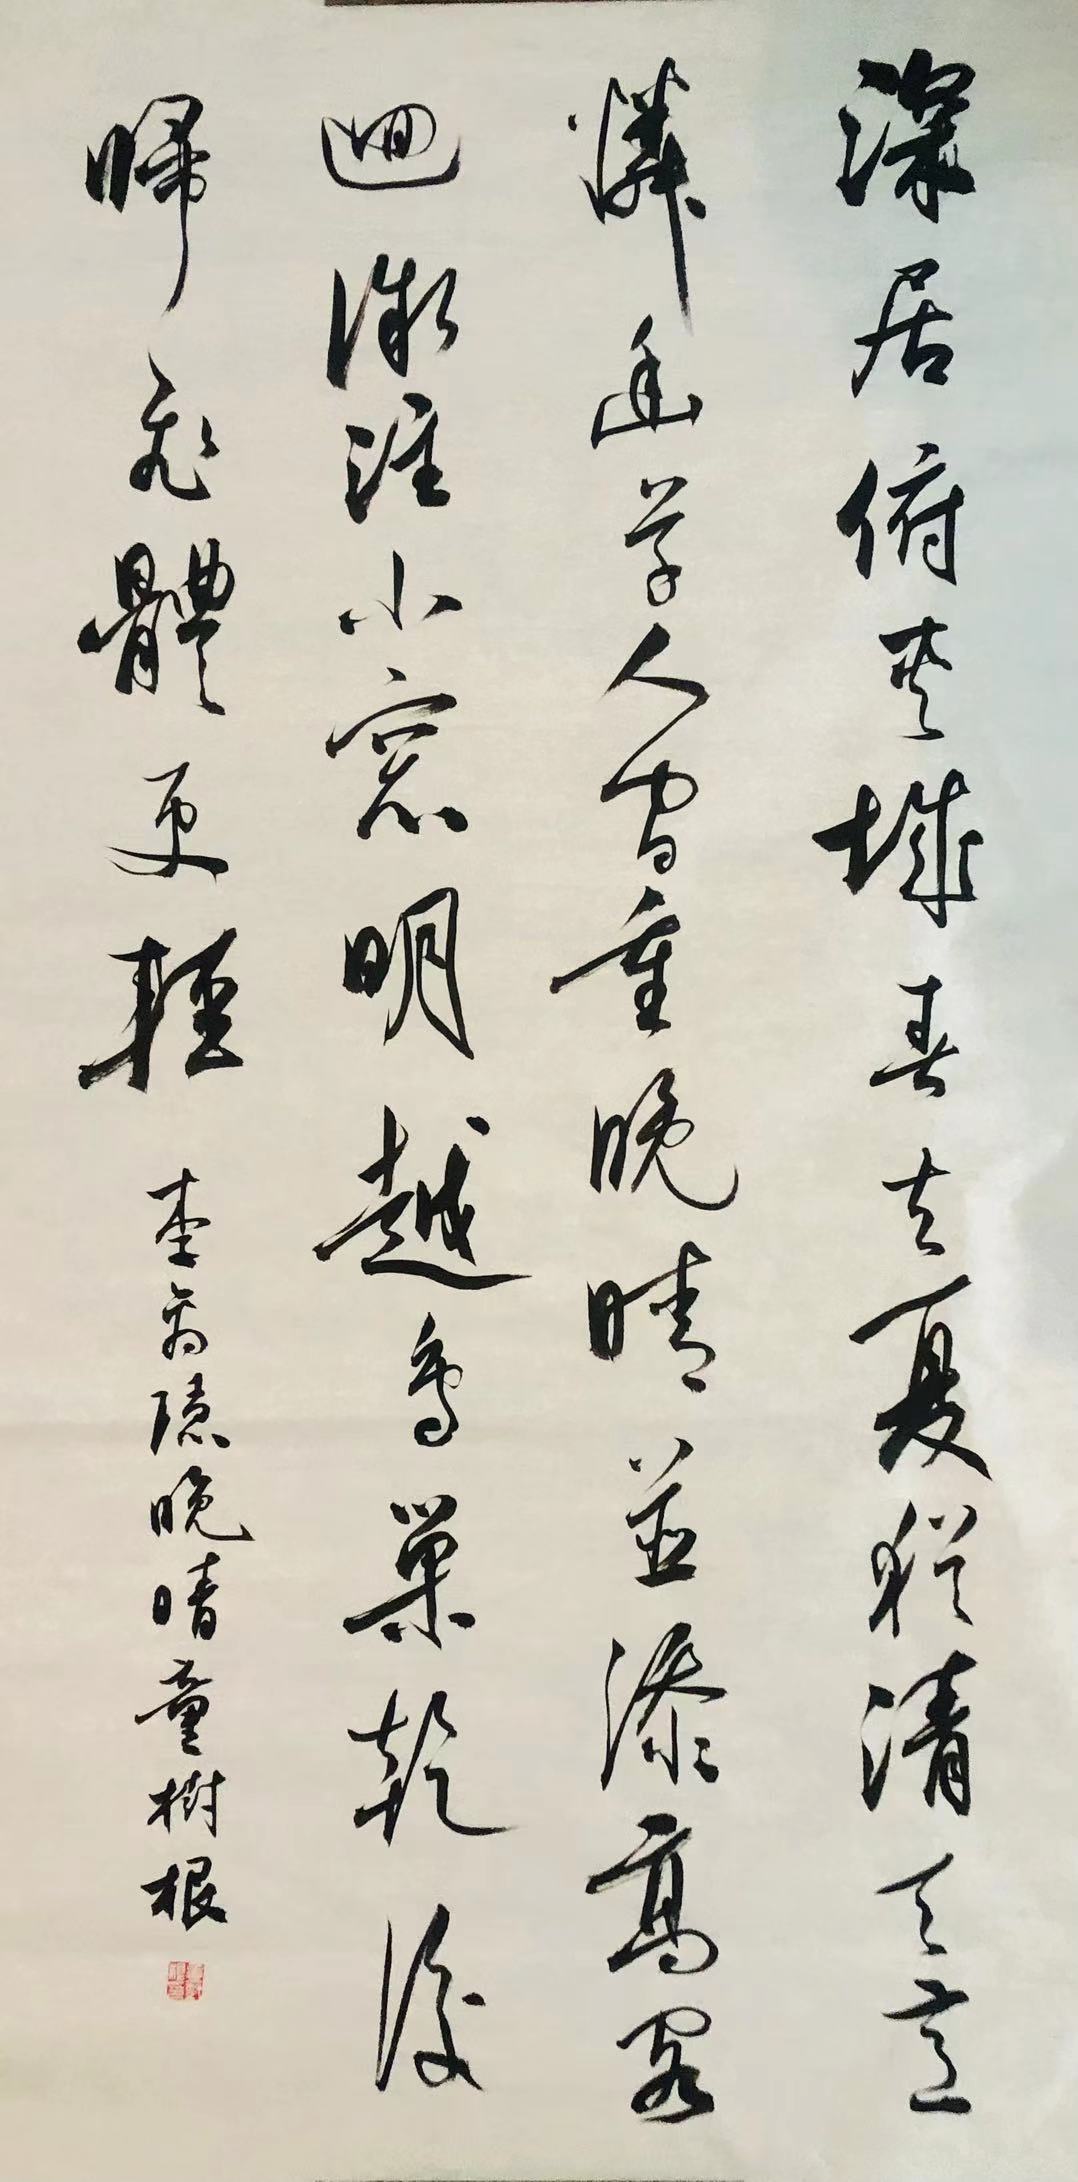 深居俯夾城春去夏猶清天意
憐幽草人間重晚晴並添高閣
迴微注小窓明越鳥巢乾後
歸飛體更輕
李商隱晚晴童樹根